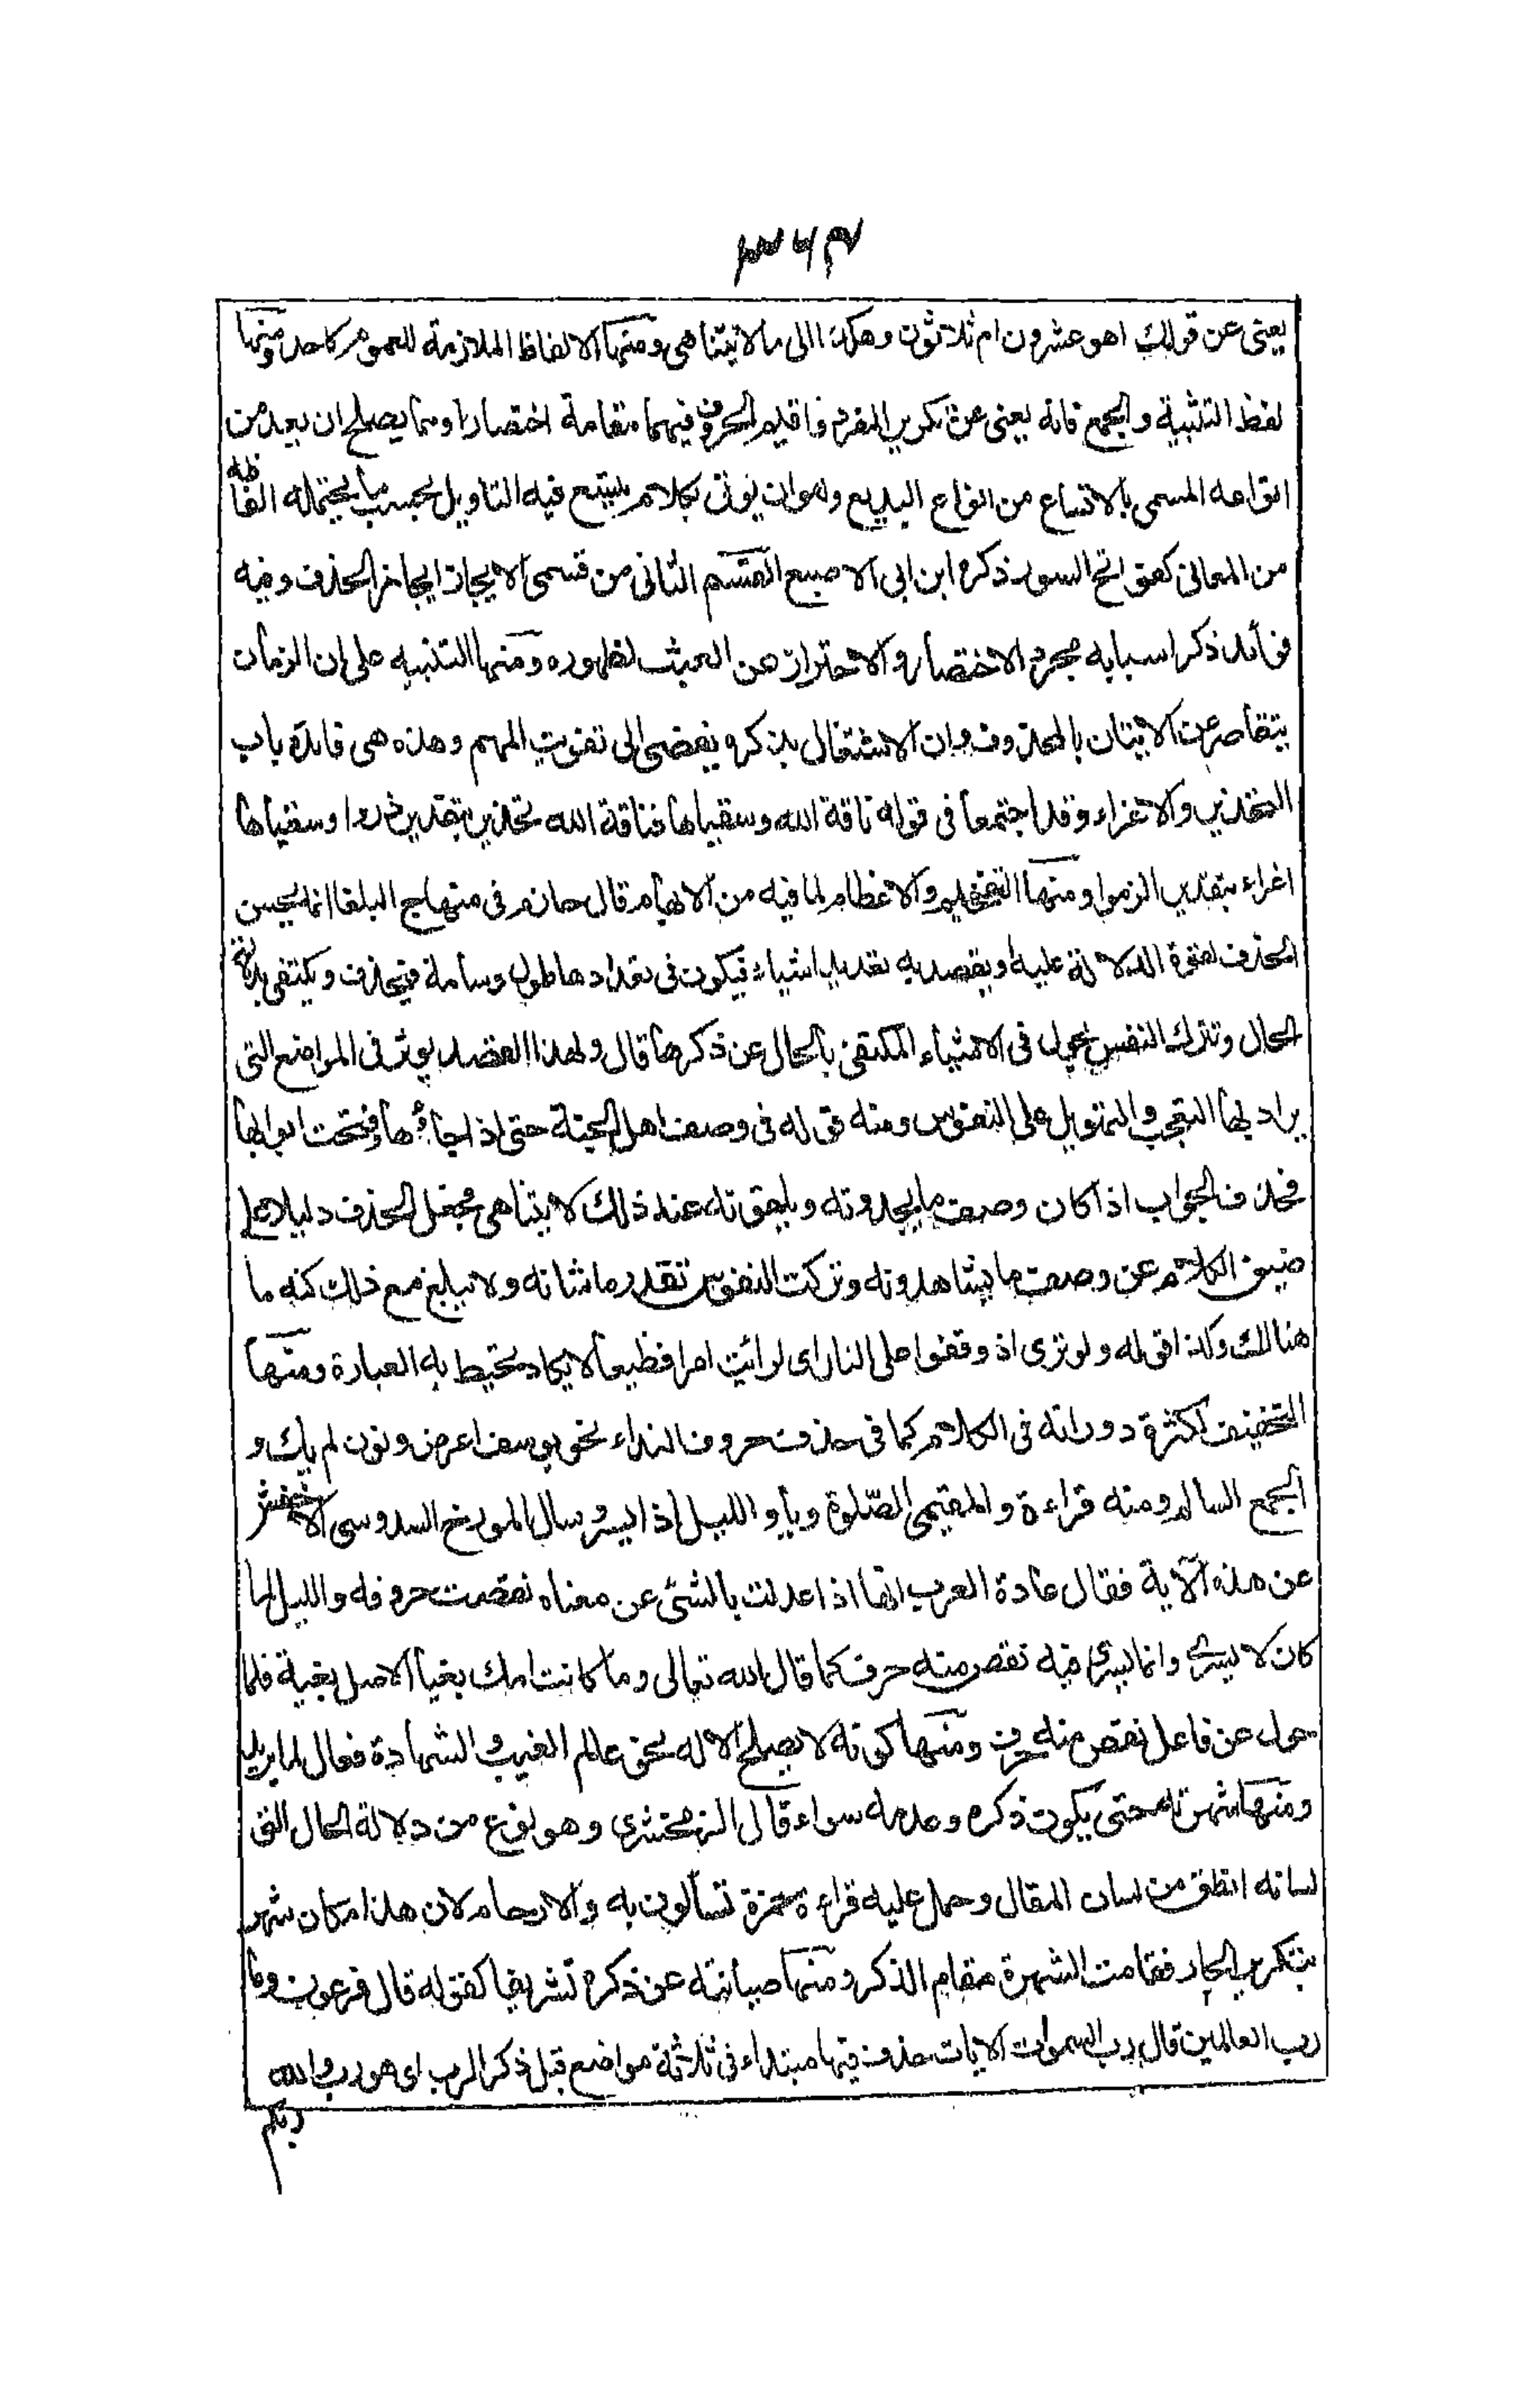 ٣٦٧
يعنى عن قولك اهو عشرون ام ثلاثون وهكذا الى ما لا يتناهى ومنها الالفاظ الملازمة للعموم كاحد ومنها
لفظ التثنية والجمع فانه يعنى عن تكرير المفرد واقيم الحروف فيهما مقامة اختصارا ومما يصلح ان يعد من
انواعه المسمى بالاتساع من انواع البديع وهو ان يوتى بكلام يتسع فيه التاويل بحسب ما يحتمله الفاظه
من المعانى كفواتح السور ذكره ابن ابى الاصبع القسم الثانى من قسمى الايجاز ايجاز الحذف وفيه
فوائد ذكر اسبابه مجرد الاختصار والاحتراز عن العبث لظهوره ومنها التنبيه على ان الزمان
يتقاصر عن الاتيان بالمحذوف وان الاشتغال بذكره يفضى الى تفويت المهم وهذه هى فائدة باب
التحذير والاغراء وقد اجتمعا فى قوله ناقة الله وسقياها فناقة الله تحذير بتقدير ذروا وسقياها
اغراء بتقدير الزموا ومنها التفخيم والاعظام لما فيه من الابهام قال حازم فى منهاج البلغا انما يحسن
الحذف لقوة الدلالة عليه او يقصد به تعديد اشياء فيكون فى تعدادها طول وسامة فيحذف ويكتفى بدلالة
الحال وتترك النفس تجول فى الاشياء المكتفى بالحال عن ذكرها قال ولهذا القصد يوثر فى المواضع التى
يراد بها التعجب والتهويل على النفوس ومنه قوله فى وصف اهل الجنة حتى اذا جاؤها وفتحت ابوابها
فحذف الجواب اذا كان وصف ما يجدونه ويلقونه عند ذلك لا يتناهى فجعل الحذف دليلا على
ضيق الكلام عن وصف ما يشاهدونه وتركت النفوس تقدر ما شانه ولا يبلغ مع ذلك كنه ما
هنالك وكذا قوله ولو ترى اذ وقفوا على النار اى لرائيت امرا فظيعا لا يكاد تحيط به العبارة ومنها
التخفيف لكثرة دورانه فى الكلام كما فى حذف حروف النداء نحو يوسف اعرض ونون لم يك و
الجمع السالم ومنه قراءة والمقيمى الصلوة وياء والليل اذا يسر وسال المورخ السدوسى الاخفش
عن هذه الآية فقال عادة العرب انها اذا عدلت بالشئ عن معناه نقصت حروفه والليل لما
كان لا يسرى وانما يسرى فيه نقص منه حرف كما قال الله تعالى وما كانت امك بغيا الاصل بغية فلما
حول عن فاعل نقص منه حرف ومنها كونه لا يصلح الا له نحو عالم الغيب والشهادة فعال لما يريد
ومنها شهرته حتى يكون ذكره وعدمه سواء قال الزمخشرى وهو نوع من دلالة الحال التى
لسانه انطق من لسان المقال وحمل عليه قراءة حمزة تسألون به والارحام لان هذا مكان شهر
بتكرير الجار فقامت الشهرة مقام الذكر ومنها صيانته عن ذكره تشريفا كقوله قال فرعون وما
رب العالمين قال رب السموات الايات حذف فيها مبتداء فى ثلاثة مواضع قبل ذكر الرب اى هو رب والله
ربكم